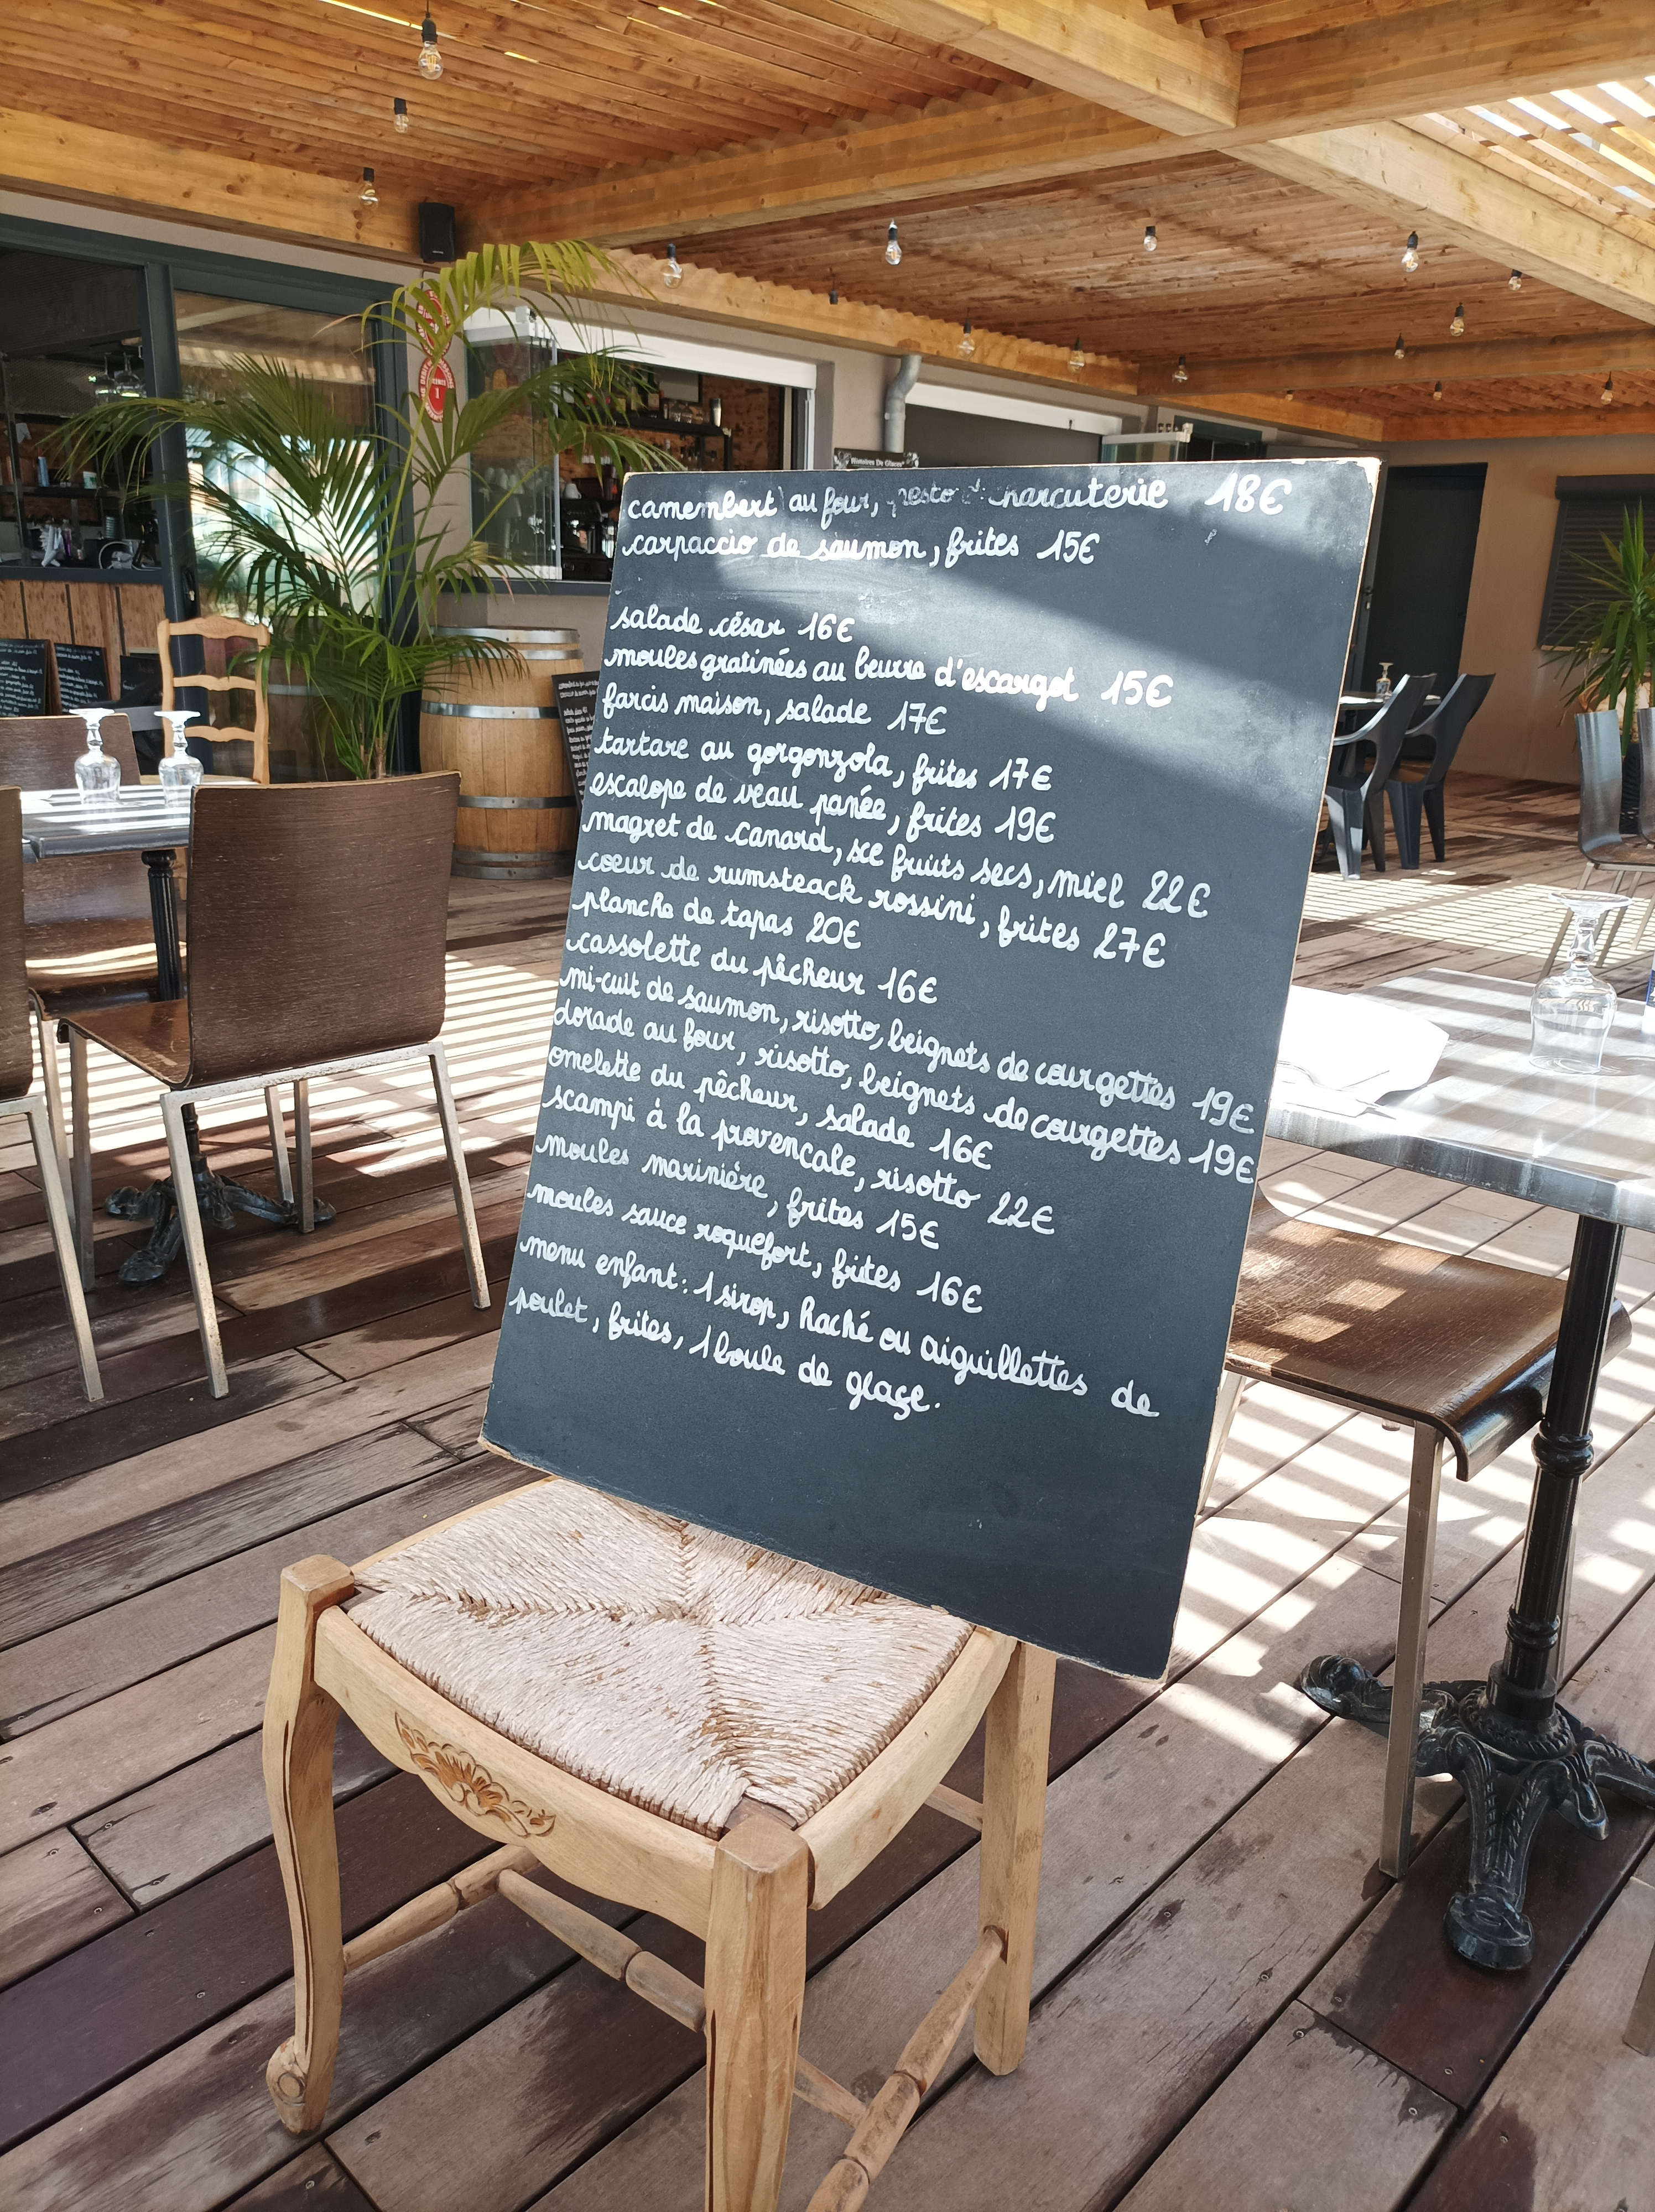 camembert au four, pesto et charcuterie 18€
carpaccio de saumon, frites 15€
salade césar 16€
moules gratinées au beurre d'escargot 15€
farcis maison, salade 17€
tartare au gorgonzola, frites 17€
escalope de veau panée, frites 19€
magret de canard, sce fruits secs, miel 22€
coeur de rumsteack rossini, frites 27€
planche de tapas 20€
cassolette du pêcheur 16€
mi-cuit de saumon, risotto, beignets de courgettes 19€
dorade au four, risotto, beignets de courgettes 19€
omelette du pêcheur, salade 16€
scampi à la provençale, risotto 22€
moules marinière, frites 15€
moules sauce roquefort, frites 16€
menu enfant: 1 sirop, haché ou aiguillettes de
poulet, frites, 1 boule de glaçe.
Histoires De Glaces